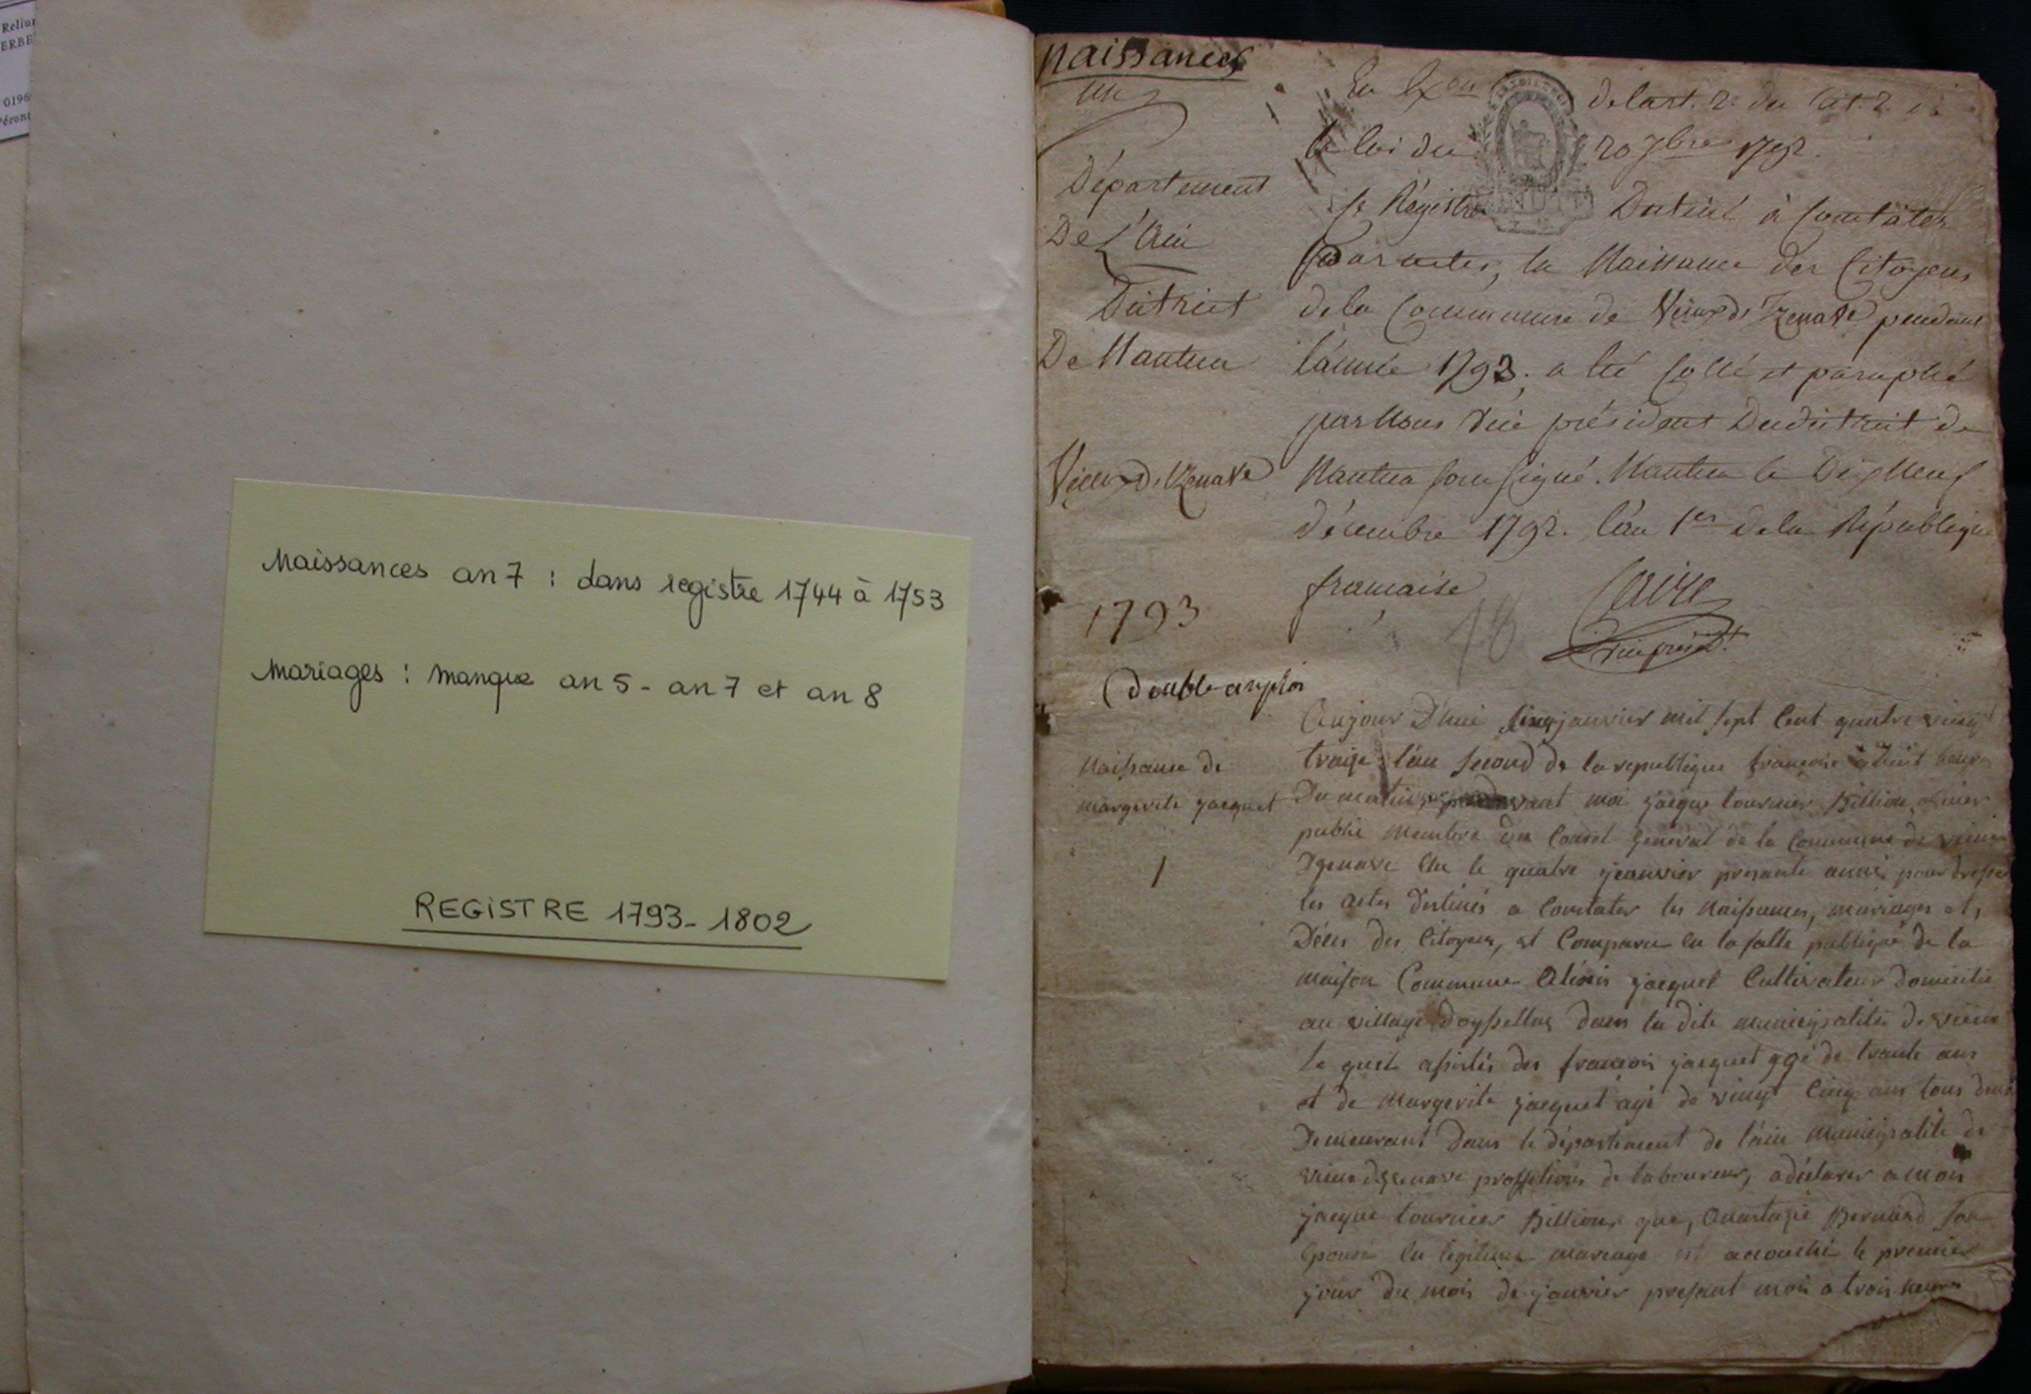 Reliu
ERBE
0196
Péron
Naissances an 7 : dans registre 1744 à 1753
Mariages : manque an 5 - an 7 et an 8
REGISTRE 1793-1802
Naissances
un
Département
De L'Ain
District
De Nantua
Vieux D'Izenave
1793
Double amploi
Naissance de
margerite jacquet
1
En de l'art. 2 du tit. 2 de
la loi du 20 7bre 1792.
Le Régistre Destiné à Constater
par actes, la Naissance des Citoyens
de la Commune de Vieux d'Izenave pendant
l'année 1793. a été Collé et paraphé
par Nous Vice président Du district de
Nantua Soussigné. Nantua le Dix Neuf
décembre 1792. l'an 1er de la République
francaise
vice présidt.
Aujour D'hui cinq janvier mil sept Cent quatre vingt
traize l'an second de la republique francoise heures
Du matin devant moi jacque tournier Billion officier
public membre du Conseil general de la Commune de vieux
Dizenave Elu le quatre jeanvier presante année pour dresser
les actes destinés a Constater les Naissances, mariages et
Décès des Citoyens, est Comparu en la salle publique de la
maison Commune jacquet Cultivateur domicilié
au village doysellas dans la dite municipalité de vieux
le quel assistés des francois jacquet agé de trante ans
et de Margerite jacquet agé de vingt Cinq ans tous deux
Demeurant Dans le département de l'ain municipalité de
vieux dizenave de laboureur, a déclarer a moi
jacque tournier Billion que, Bernard son
Epouse en legitime mariage est accouchée le premier
jour du mois de janvier present mois a trois heures